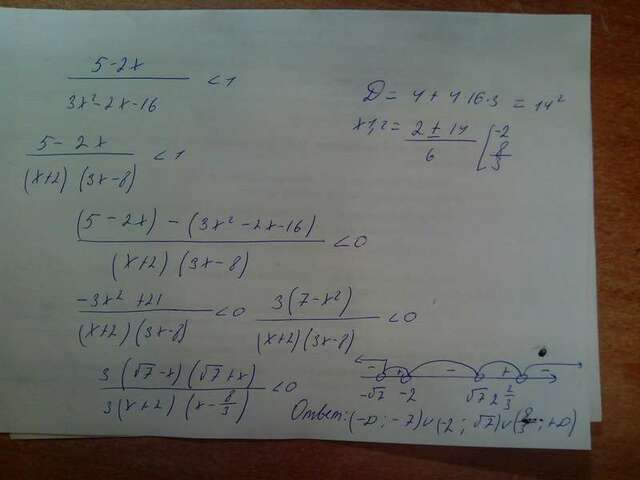 5-2x / 3x²-2x-16 <1
D = 4+4·16·3 = 14²
x1,2 = 2±14 / 6 [-2 8/3
5-2x / (x+2)(3x-8) <1
(5-2x)-(3x²-2x-16) / (x+2)(3x-8) <0
-3x²+21 / (x+2)(3x-8) <0 3(7-x²) / (x+2)(3x-8) <0
3(√7-x)(√7+x) / 3(x+2)(x-8/3) <0
- + - + -
-√7 -2 √7 2 2/3
Ответ: (-∞; -7)∪(-2; √7)∪(8/3; +∞)